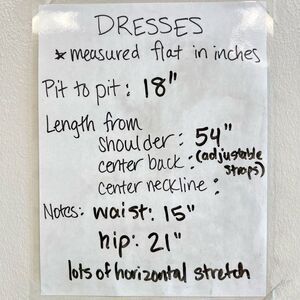 DRESSES
* measured flat in inches
Pit to pit: 18"
Length from
shoulder: 54"
center back: (adjustable straps)
center neckline:
Notes: waist: 15"
hip: 21"
lots of horizontal stretch